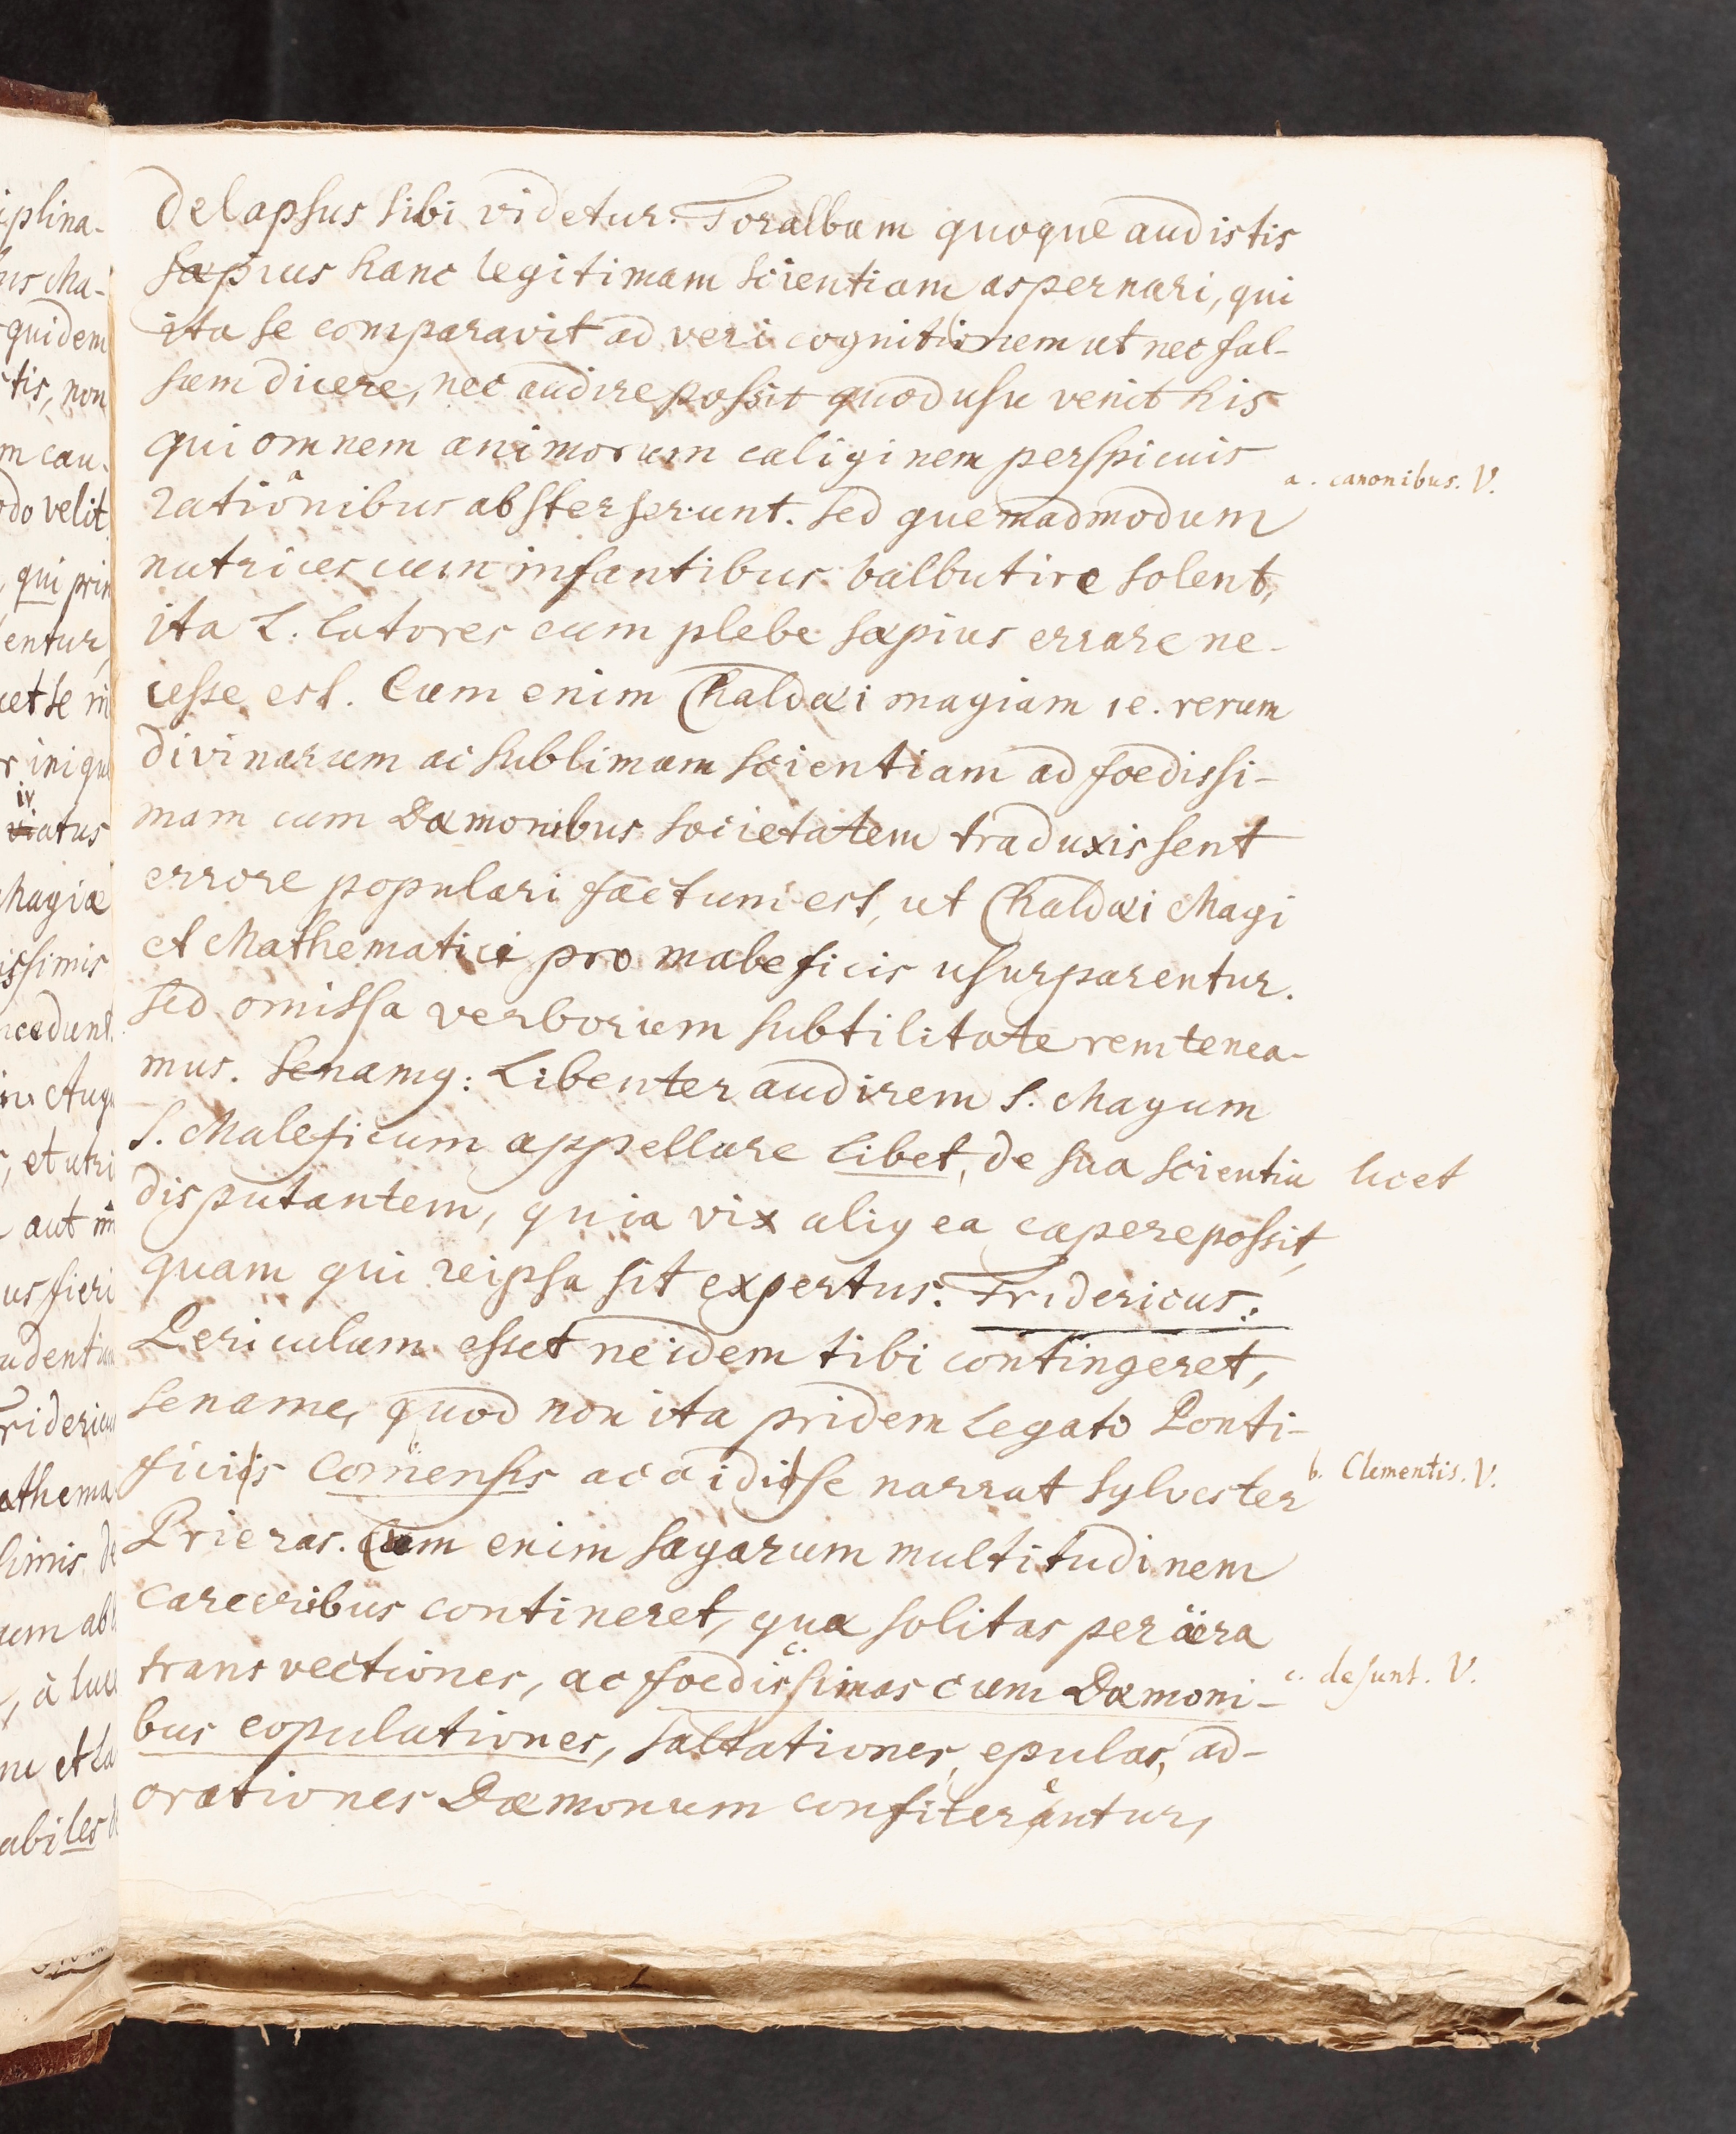 delapsus sibi videtur. Toralbam quoque audistis
sæpius hanc legitimam scientiam aspernari, qui
ita se comparavit ad veri cognitionem ut nec fal-
sum dicere, nec audire possit quod usu venit his
qui omnem animorum caliginem perspicuis
a. canonibus. V.
rationibus absterserunt. sed quemadmodum
nutrices cum infantibus balbutire solent,
ita L. latores cum plebe sæpius errare ne-
cesse est. Cum enim Chaldæi magiam ie. rerum
divinarum ac sublimam scientiam ad foedissi-
mam cum Dæmonibus societatem traduxissent
errore populari factum est, ut Chaldæi Magi
et Mathematici pro maleficis usurparentur.
sed omissa verborum subtilitate rem tenea-
mus. Senamy: Libenter audirem S. Magum
S. Maleficum appellare libet, de sua scientia licet
disputantem, quia vix aliq ea capere possit,
quam qui reipsa sit expertus. Fridericus.
Periculum esset ne idem tibi contingeret,
Sename, quod non ita pridem Legato Ponti-
ficis Comensis accidisse narrat Sylvester b. Clementis. V.
Prieras. Cum enim sagarum multitudinem
carceribus contineret, quæ solitas per äera
transvectiones, ac foedissimas cum Dæmoni- c. desunt. V.
bus copulationes, saltationes, epulas, ad-
orationes Dæmonum confiterentur,
iplina-
us Ma-
quidem
tis, non
m cau-
odo velit
, qui prin
entur,
uet se in
r iniqu
iv
viatus
Magiæ
issimis
ncedunt.
in Aug
, et utri
aut im
us fieri
udentium
ridericus
athema
simis de
um ab
, à luce
ne et la
abiles